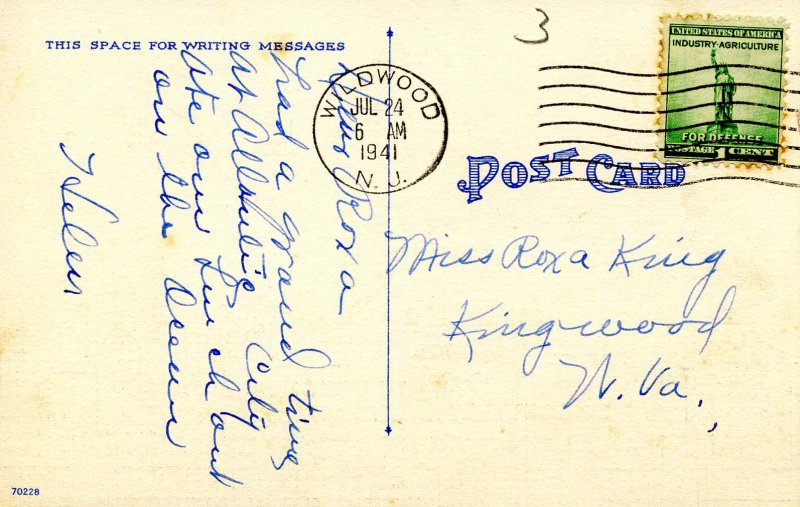 THIS SPACE FOR WRITING MESSAGES
Dear Roxa
Had a grand time
at Atlantic City
Ate our Lunch out
on the Ocean
Helen
3
WILDWOOD
JUL 24
6 AM
1941
N. J.
UNITED STATES OF AMERICA
INDUSTRY·AGRICULTURE
FOR DEFENSE
POSTAGE 1 CENT
POST CARD
Miss Roxa King
Kingwood
W. Va.,
70228